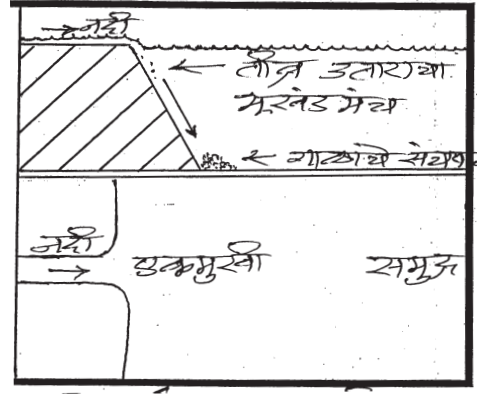 नदी
तीव्र उताराचा
भूखंड मंच
गाळाचे संचयन
नदी
एकमुखी
समुद्र